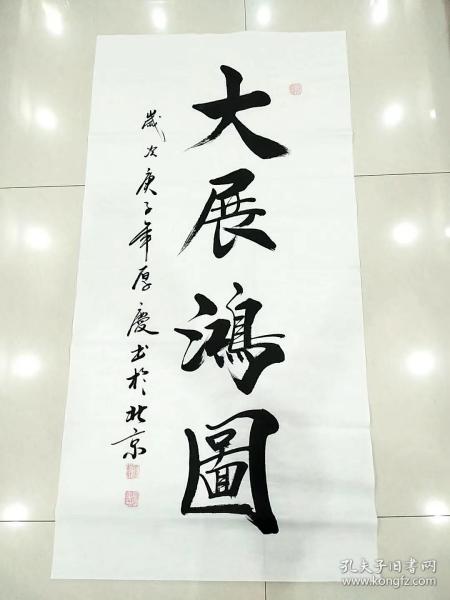 大展鴻圖
歲次庚子年厚慶书於北京
孔夫子旧书网
www.kongfz.com